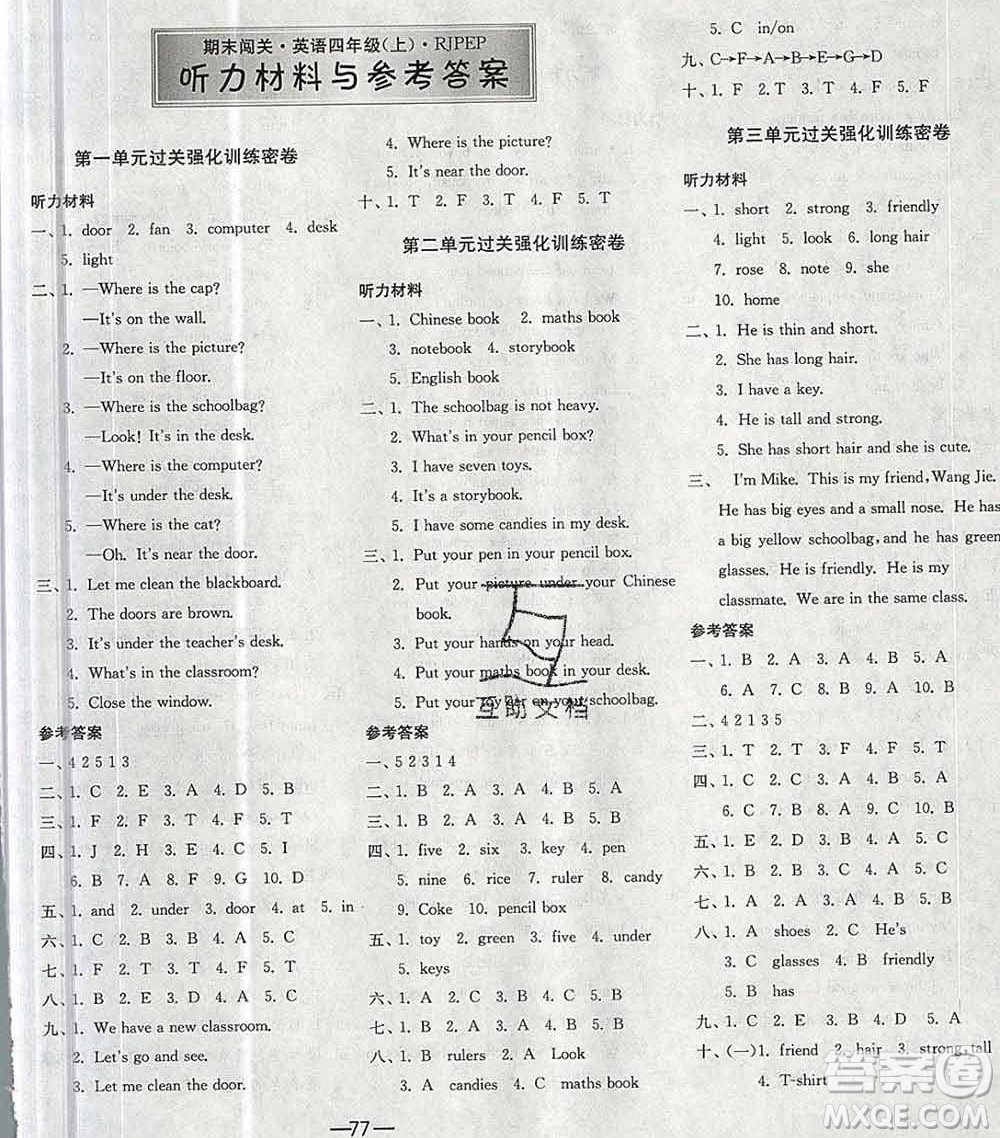 期末闯关·英语四年级(上)·RJPEP
听力材料与参考答案
第一单元过关强化训练密卷
听力材料
一、1. door 2. fan 3. computer 4. desk
5. light
二、1. —Where is the cap?
—It's on the wall.
2. —Where is the picture?
—It's on the floor.
3. —Where is the schoolbag?
—Look! It's in the desk.
4. —Where is the computer?
—It's under the desk.
5. —Where is the cat?
—Oh. It's near the door.
三、1. Let me clean the blackboard.
2. The doors are brown.
3. It's under the teacher's desk.
4. What's in the classroom?
5. Close the window.
参考答案
一、4 2 5 1 3
二、1. C 2. E 3. A 4. D 5. B
三、1. F 2. F 3. T 4. F 5. T
四、1. J 2. H 3. E 4. C 5. I
6. B 7. A 8. F 9. G 10. D
五、1. and 2. under 3. door 4. at 5. in
六、1. C 2. B 3. B 4. A 5. C
七、1. F 2. T 3. T 4. F 5. T
八、1. C 2. A 3. B 4. B 5. C
九、1. We have a new classroom.
2. Let's go and see.
3. Let me clean the door.
4. Where is the picture?
5. It's near the door.
十、1. T 2. F 3. T 4. F 5. T
第二单元过关强化训练密卷
听力材料
一、1. Chinese book 2. maths book
3. notebook 4. storybook
5. English book
二、1. The schoolbag is not heavy.
2. What's in your pencil box?
3. I have seven toys.
4. It's a storybook.
5. I have some candies in my desk.
三、1. Put your pen in your pencil box.
2. Put your picture under your Chinese
book.
3. Put your hands on your head.
4. Put your maths book in your desk.
5. Put your toy car on your schoolbag.
参考答案
一、5 2 3 1 4
二、1. B 2. A 3. A 4. B 5. B
三、1. B 2. B 3. A 4. B 5. B
四、1. five 2. six 3. key 4. pen
5. nine 6. rice 7. ruler 8. candy
9. Coke 10. pencil box
五、1. toy 2. green 3. five 4. under
5. keys
六、1. A 2. C 3. B 4. C 5. A
七、1. B 2. C 3. A 4. A 5. B
八、1. B rulers 2. A Look
3. A candies 4. C maths book
5. C in/on
九、C→F→A→B→E→G→D
十、1. F 2. T 3. T 4. F 5. F
第三单元过关强化训练密卷
听力材料
一、1. short 2. strong 3. friendly
4. light 5. look 6. long hair
7. rose 8. note 9. she
10. home
二、1. He is thin and short.
2. She has long hair.
3. I have a key.
4. He is tall and strong.
5. She has short hair and she is cute.
三、I'm Mike. This is my friend, Wang Jie.
He has big eyes and a small nose. He has
a big yellow schoolbag, and he has green
glasses. He is my friend. He is my
classmate. We are in the same class.
参考答案
一、1. B 2. A 3. A 4. B 5. A
6. A 7. A 8. B 9. A 10. B
二、4 2 1 3 5
三、1. T 2. T 3. F 4. F 5. T
四、1. C 2. C 3. A 4. B 5. C
6. C 7. B 8. A 9. C 10. B
五、1. D 2. E 3. A 4. C 5. B
六、1. A 2. B 3. B 4. B 5. C
七、1. A 2. B 3. A 4. B 5. B
八、1. A shoes 2. C He's
3. C glasses 4. B friendly
5. B has
九、1. C 2. E 3. B 4. D 5. A
十、(一)1. friend 2. hair 3. strong, tall
4. T-shirt
—77—
互助文档
答案圈
MXQE.COM